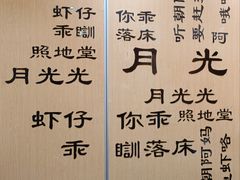 虾仔
乖瞓
照地堂
月光光
虾仔
乖
你乖
落床
听朝
要赶
月光
月光光
照地堂
你乖
瞓落床
朝阿妈